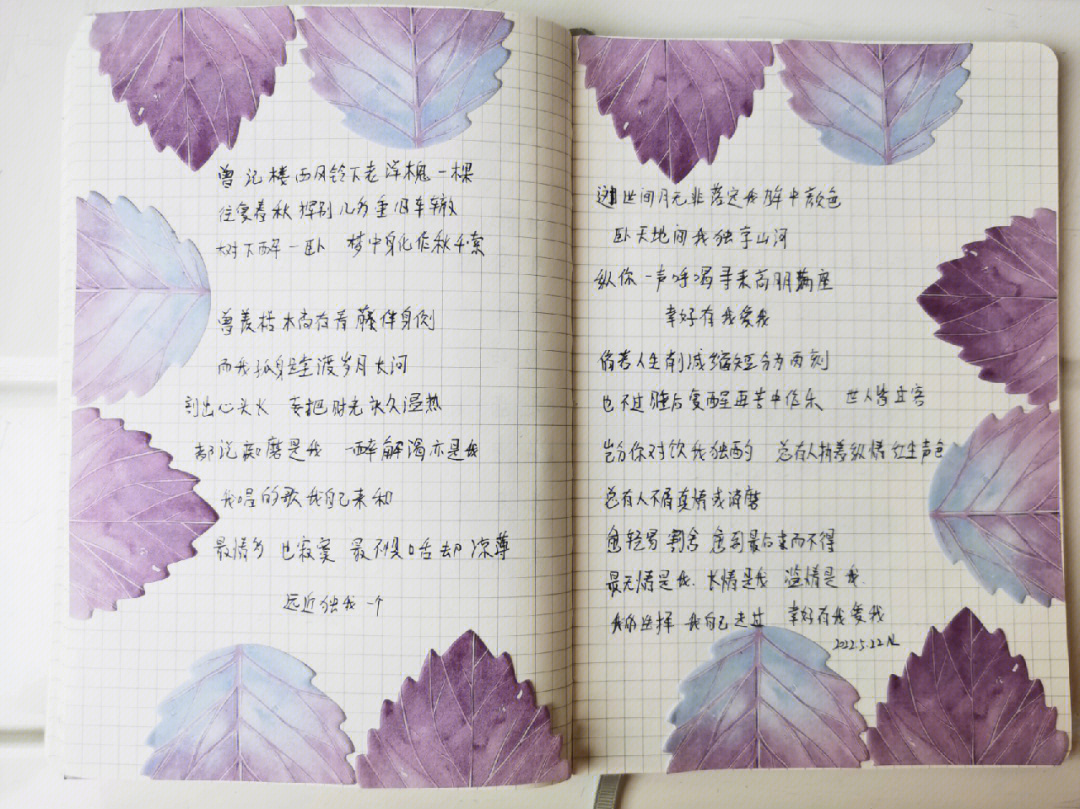 曾记楼西风铃下老洋槐一棵
往复春秋挥别几多重旧车辙
树下醉一卧 梦中身化作秋千索
曾羡枯木尚有青藤伴身侧
而我孤身空渡岁月长河
剖出心头长 妄把时光永久温热
都说痴磨是我 一醉解渴亦是我
我唱的歌我自己来和
最情多 也寂寞 最不惧唇舌却
远近独我一个
世间月无非落定我眸中颜色
卧天地间我独享山河
纵你一声呼喝寻来高朋满座
幸好有我爱我
倘若人生削减缩短分为两刻
也不过睡后复醒再苦中作乐 世人皆过客
岂分你对饮我独酌 总有人执着纵情处生声色
总有人不屑真情或消磨
轻易 割舍 最后求而不得
最无情是我 长情是我 滥情是我
我的选择 我自己走过 幸好有我爱我
2022.5.22